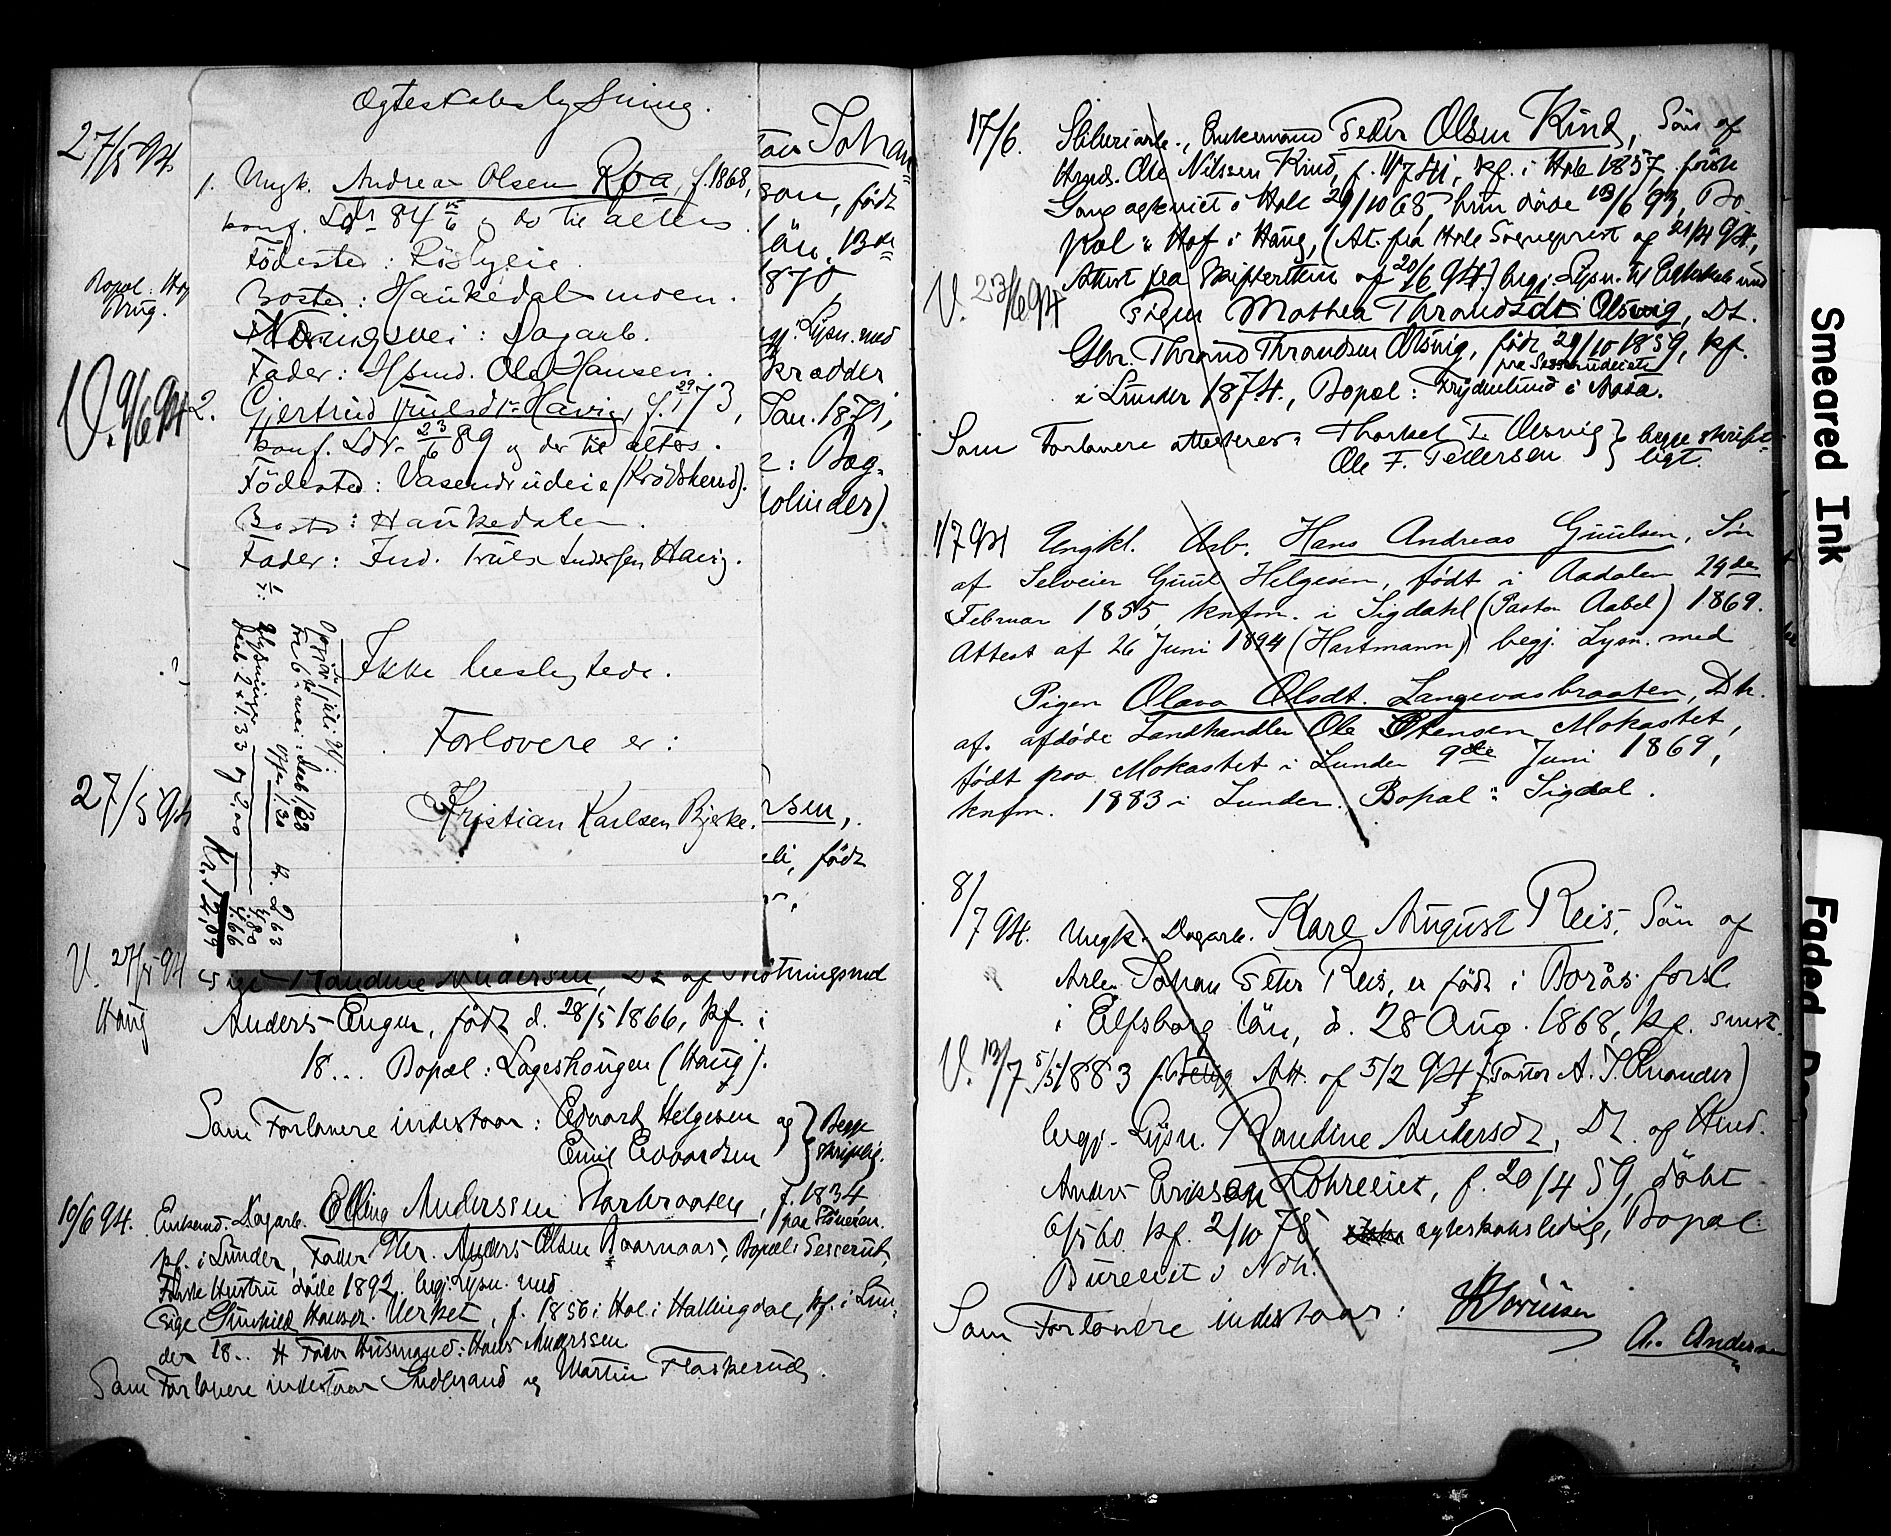 27/5 94.
Bopæl: Hof
Haug.
V. 9/6 94
27/5 94
V. 27/5 94
Haug
Ægteskabslysning.
1. Ungk. Andreas Olsen Roa, f. 1868,
konf. Ldr 84 15/6 og do til alters.
Födested: Röslyeie.
Bosted: Haukedalsmoen.
Næringsvei: Dagarb.
Fader: Hsmd. Ole Hansen.
2. Gjertrud Trulsdtr Havig, f. 29/1 73,
konf. Ldr. 23/6 89 og der til alters.
Födested: Vasendrudeie (Krödsherred).
Bosted: Haukedalen.
Fader: Ind. Truls Andersen Havig.
Ikke beslegtede.
Forlovere er:
Kristian Karlsen Bjerke.
Kr. 12,09
Johan
son, født
län, 13de
1870
Lysn. med
Skrædder
Jan. 1871,
e: Bæg-
lolinder)
rsen,
eli, født
Pige Randine Andersen, Dt. af Slotningsmd
Anders Engen, født d. 28/5 1866, kf. i
18... Bopæl: Lageshaugen (Haug).
Som Forlovere indestaar: Edvard Helgesen og
Emil Edvardsen
Begge
skriftlig.
10/6 94. Enkemd. Dagarb. Elling Anderssen Storbraaten, f. 1834
paa Stöveren.
kf. i Lunder, Fader Gbr. Anders Olsen Baarnaas, Bopæl: Sesserud,
Første Hustru døde 1892. begj. Lysn. med
Pige Gunhild Hansdt. Verket, f. 1856 i Hol i Hallingdal, kf. i Lun-
der 18.. # Fader Husmand: Hans Anderssen
Som Forlovere indestaar Sudbrand og Martin Flaskerud.
17/6. Sliberiarb., Enkemand Peder Olsen Kind, Sön af
Hmd. Ole Nilssen Kind, f. 11/7 41, kf. i Hole 1857 förste
Gang ægteviet i Hole 29/10 68, hun døde 13/6 93, Bo-
pæl: Hof i Haug, (At. fra Hole Sogneprest af 21/4 94,
Attest fra Skifteretten af 20/6 94) begj. Lysn. til Ægteskab med
V. 23/6 94
Pigen Mathea Thrandsdt Olsvig, Dt.
Gbr. Thrand Thrandsen Olsvig, født 29/10 1859, kf.
paa Sesserudeiet
i Lunder 1874., Bopæl: Frydenlund i Aasa.
Som Forlovere attesterer: Thorkel T. Olsvig
Ole F. Pedersen
begge skrift-
ligt.
1/7 94 Ungkl. Arb. Hans Andreas Guulsen, Søn
af Selveier Guul Helgesen, født i Aadalen 29de
Februar 1855, knfm. i Sigdahl (Pastor Aabel) 1869.
Attest af 26 Juni 1894 (Hartmann) begj. Lysn. med
Pigen Olava Olsdt. Langevasbraaten, Dtr.
af. afdøde Landhandler Ole Stensen Mokastet,
født paa Mokastet i Lunder 9de Juni 1869,
knfm. 1883 i Lunder. Bopæl: Sigdal.
8/7 94. Ungk. Dagarb. Karl August Reis, Sön af
Arb. Johan Peter Reis, er född i Borås forsl.
i Elfsborg län, d. 28 Aug. 1868, kf. smst.
V. 13/7
5/5 1883 Att. af 5/2 94 (Pastor A. J. Enander)
begj. Lysn. Randine Andersdt, Dt. af Hmd.
Anders Eriksen Lohreeiet, f. 20/4 59, döbt
6/5 60 kf. 2/10 78, ægteskabsledig, Bopæl
Bureeiet i Ndh.
Som Forlovere indestaar:
A. Andersen
Smeared Ink
Faded